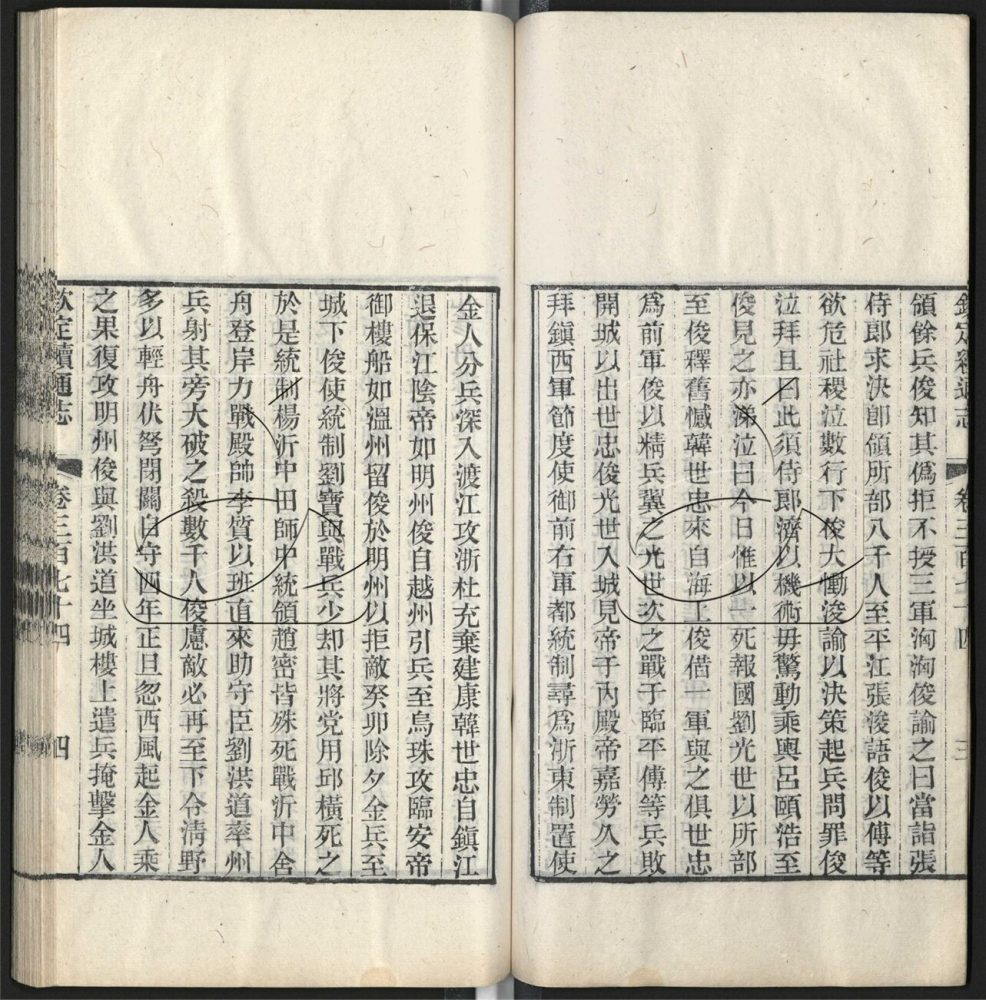 領餘兵俊知其僞拒不授三軍洶洶俊諭之曰當詣張
侍郎求決卽領所部八千人至平江張浚語俊以傅等
欲危社稷泣數行下俊大慟浚諭以決策起兵問罪俊
泣拜且曰此須侍郎濟以機術毋驚動乘輿呂頤浩至
俊見之亦涕泣曰今日惟以一死報國劉光世以所部
至俊釋舊憾韓世忠來自海上俊借一軍與之俱世忠
爲前軍俊以精兵翼之光世次之戰于臨平傅等兵敗
開城以出世忠俊光世入城見帝于內殿帝嘉勞久之
拜鎮西軍節度使御前右軍都統制尋爲浙東制置使
金人分兵深入渡江攻浙杜充棄建康韓世忠自鎮江
退保江陰帝如明州俊自越州引兵至烏珠攻臨安帝
御樓船如溫州留俊於明州以拒敵癸卯除夕金兵至
城下俊使統制劉寶與戰兵少却其將党用邱橫死之
於是統制楊沂中田師中統領趙密皆殊死戰沂中舍
舟登岸力戰殿帥李質以班直來助守臣劉洪道率州
兵射其旁大破之殺數千人俊慮敵必再至下令淸野
多以輕舟伏弩閉關自守四年正旦忽西風起金人乘
之果復攻明州俊與劉洪道坐城樓上遣兵掩擊金人
欽定續通志 卷三百七十四 四